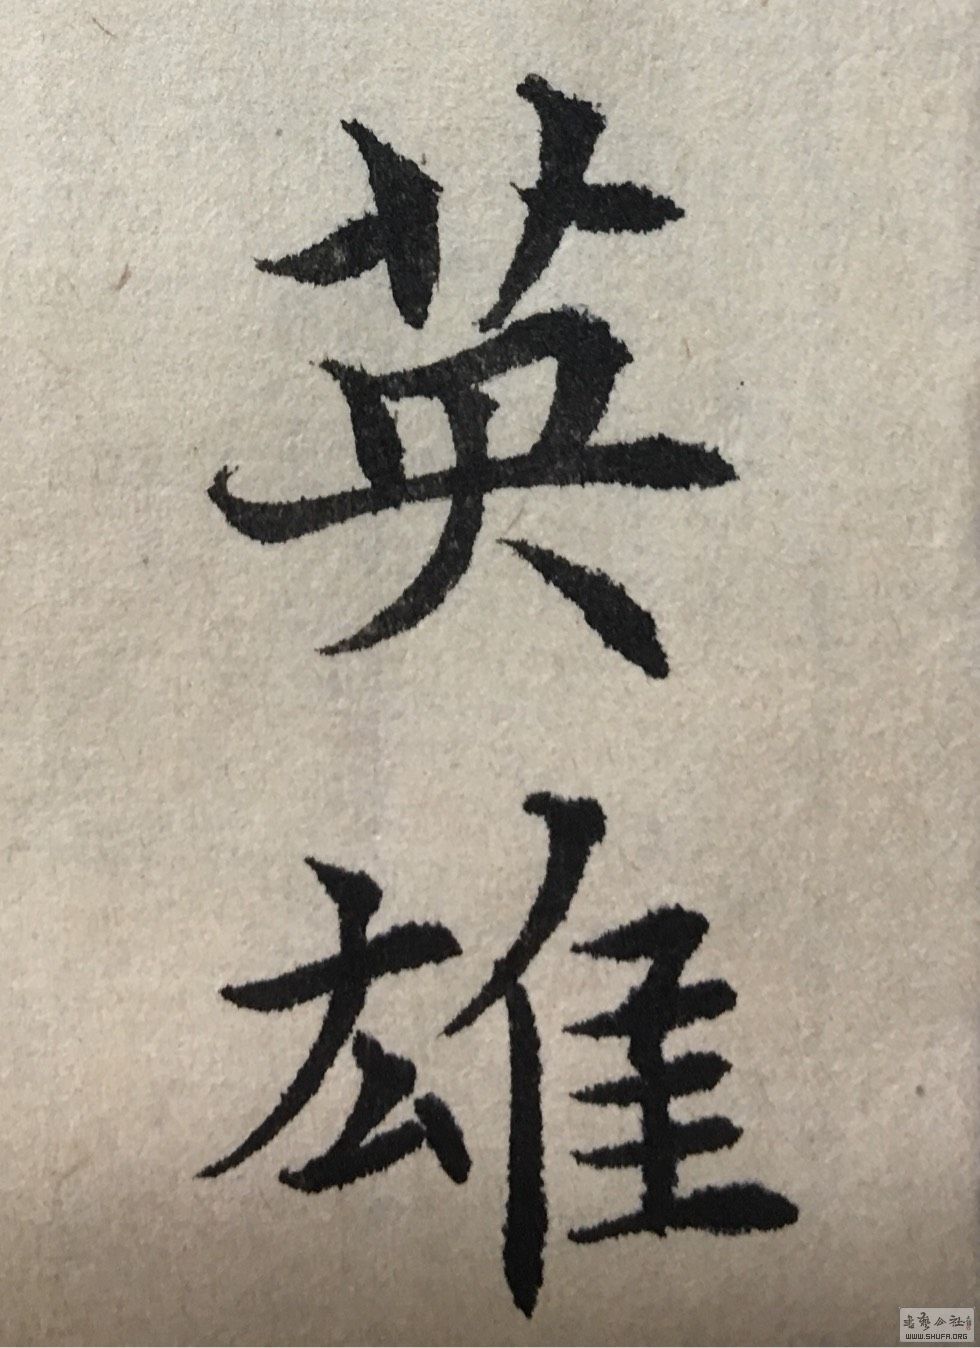 英雄
书艺公社
WWW.SHUFA.ORG